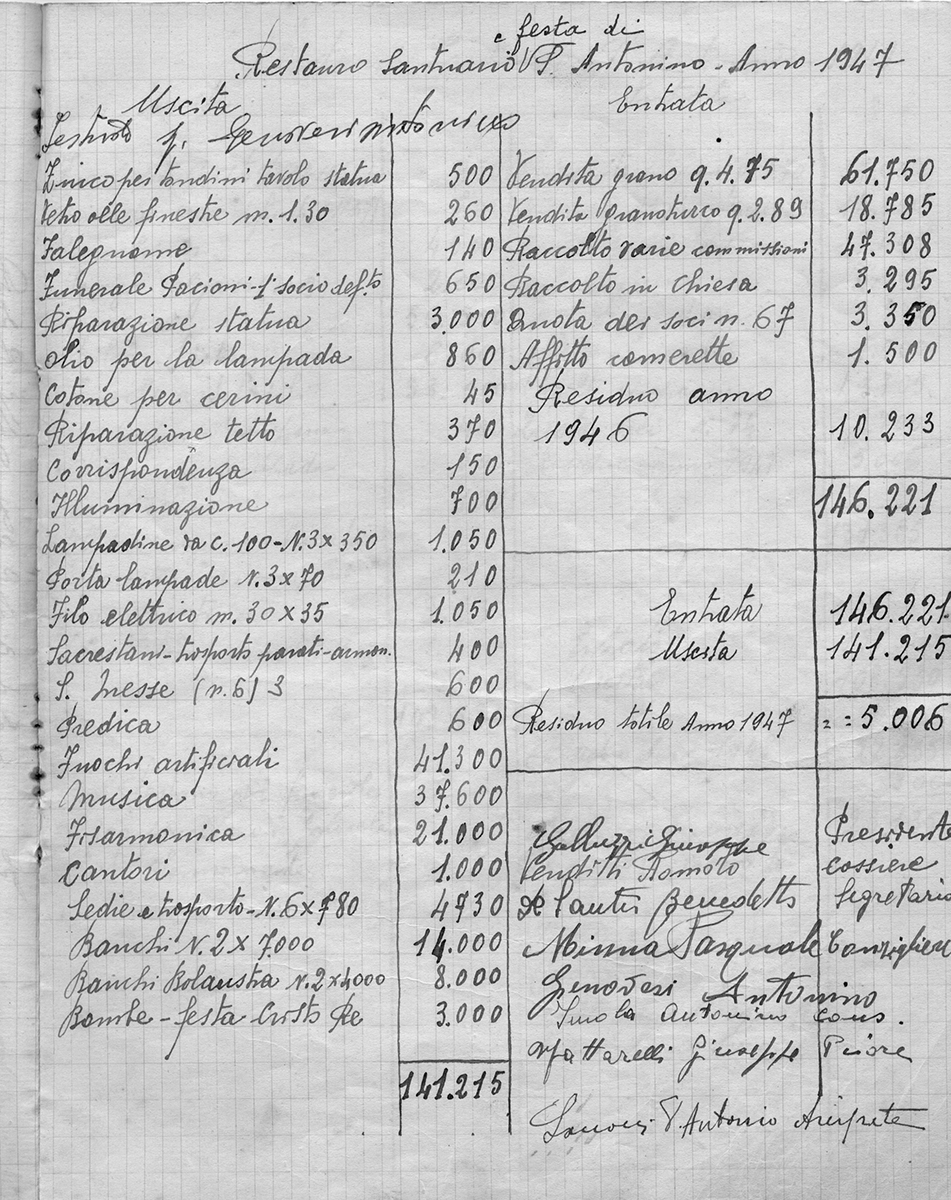 e festa di
Restauro Santuario S. Antonino - Anno 1947
Uscita
Entrata
Zinco per tondini tavolo statua 500
Vetro alle finestre m. 1.30 260
Falegname 140
Funerale Pacioni - 1° socio def.to 650
Riparazione statua 3.000
Olio per la lampada 860
Cotone per cerini 45
Riparazione tetto 370
Corrispondenza 150
Illuminazione 700
Lampadine da c. 100 - N. 3 x 350 1.050
Porta lampade N. 3 x 70 210
Filo elettrico m. 30 x 35 1.050
Sacrestani - trasporto parati - armon. 400
S. Messe (n. 6) 3 600
Predica 600
Fuochi artificiali 41.300
Musica 37.600
Fisarmonica 21.000
Cantori 1.000
Sedie e trasporto - N. 6 x 780 4730
Banchi N. 2 x 7.000 14.000
Banchi N. 2 x 4000 8.000
Bombe - festa Cristo Re 3.000
141.215
Vendita grano q. 4.75 61.750
Vendita granoturco q. 2.89 18.785
Raccolto varie commissioni 47.308
Raccolto in chiesa 3.295
Quota dei soci n. 67 3.350
Affitto camerette 1.500
Residuo anno
1946 10.233
146.221
Entrata 146.221
Uscita 141.215
Residuo totile Anno 1947 = = 5.006
Galluzzi Giuseppe Presidente
Venditti Romolo cassiere
De Santis Benedetto Segretario
Minna Pasquale Consigliere
Genovesi Antonino
Antonino cons.
Mattarelli Giuseppe Priore
D. Antonio Arciprete